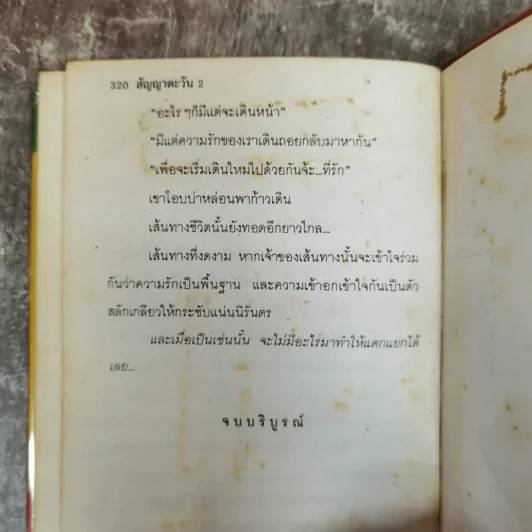 320 สัญญาตะวัน 2
"อะไร ๆก็มีแต่จะเดินหน้า"
"มีแต่ความรักของเราเดินถอยกลับมาหากัน"
"เพื่อจะเริ่มเดินใหม่ไปด้วยกันจ้ะ...ที่รัก"
เขาโอบบ่าหล่อนพาก้าวเดิน
เส้นทางชีวิตนั้นยังทอดอีกยาวไกล...
เส้นทางที่งดงาม หากเจ้าของเส้นทางนั้นจะเข้าใจร่วม
กันว่าความรักเป็นพื้นฐาน และความเข้าอกเข้าใจกันเป็นตัว
สลักเกลียวให้กระชับแน่นนิรันดร
และเมื่อเป็นเช่นนั้น จะไม่มีอะไรมาทำให้แตกแยกได้
เลย...
จบบริบูรณ์